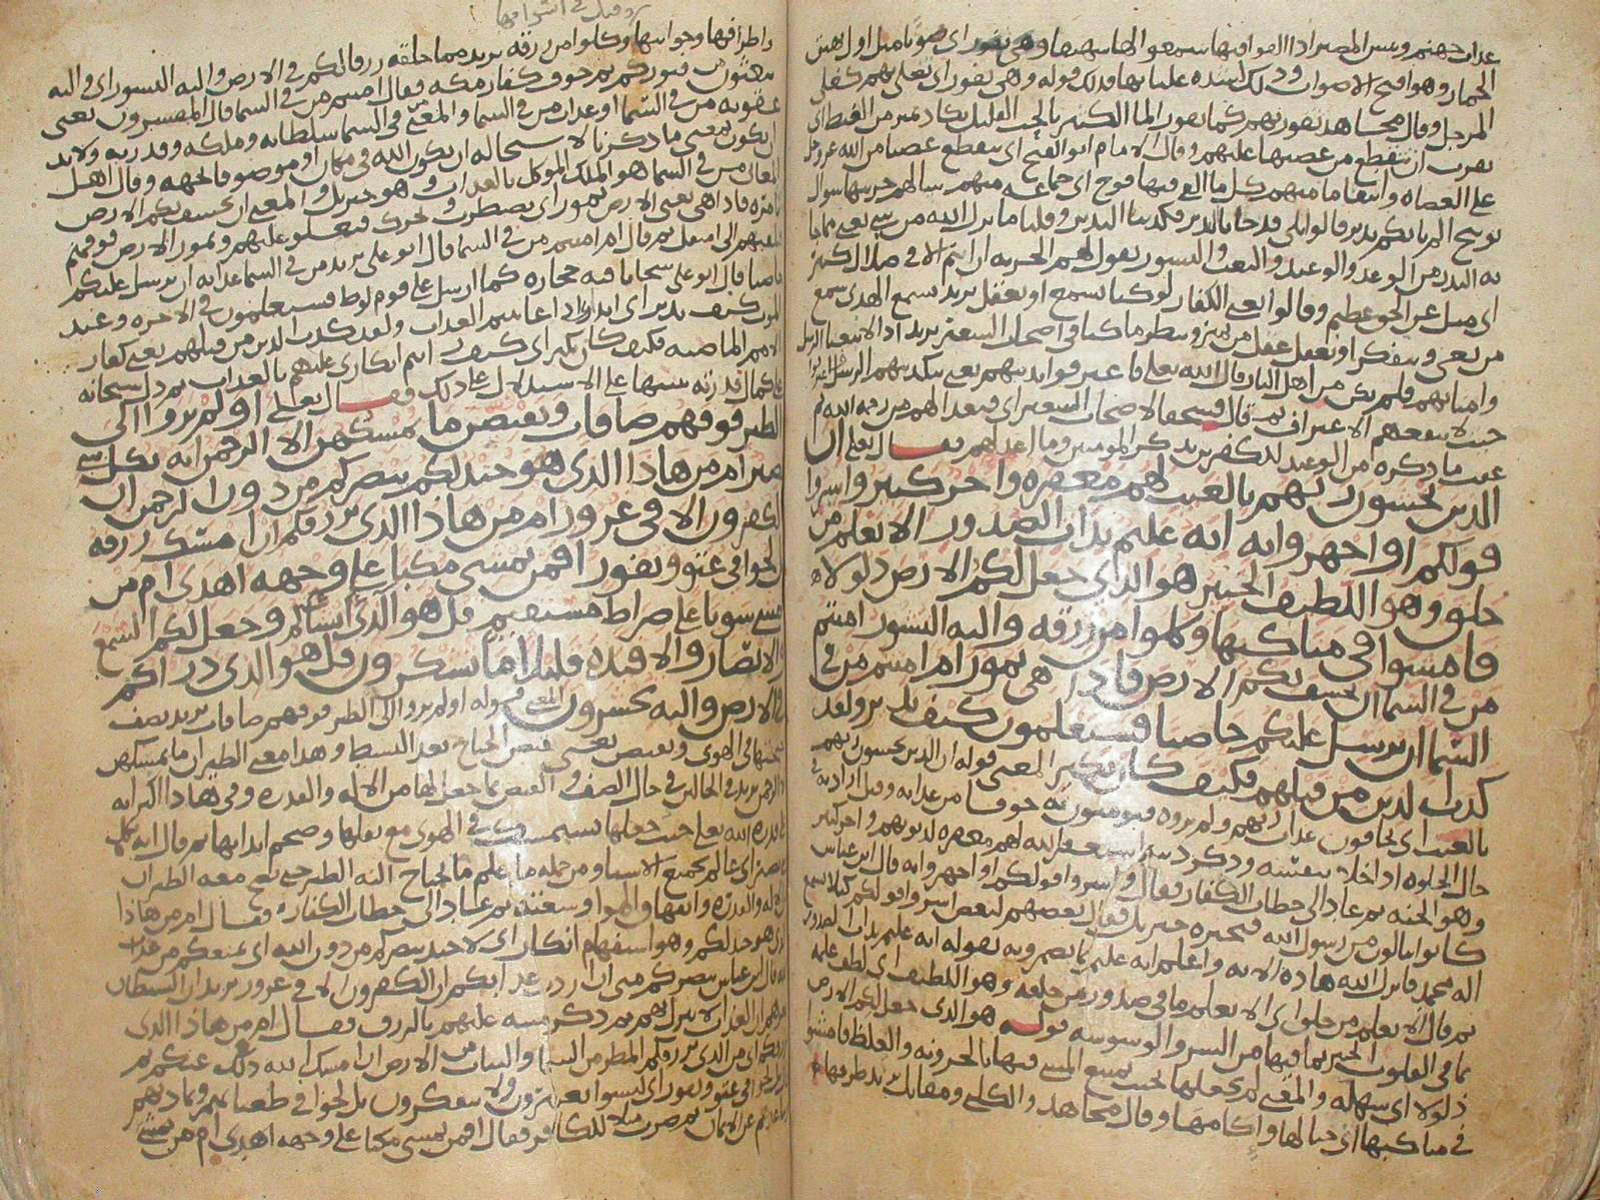 عذاب جهنم وبئس المصير اذا القوا فيها سمعوا لها شهيقا وهي تفور اي صوتا مثل اول نهيق
الحمار وهو اقبح الاصوات وهي تفور اي تغلي بهم كغلي
المرجل وقال مجاهد تفور بهم كما يفور الما الكثير بالحب القليل تكاد تميز من الغيظ اي
تقرب ان تتقطع من غضبها عليهم وقال الامام ابو الفتح اي تتقطع غضبا من الله عز وجل
على العصاه وانتقاما منهم كل ما القي فيها فوج اي جماعه منهم سالهم خزنتها سوال
توبيخ الم ياتكم نذير قالوا بلى قد جانا نذير فكذبنا النذير وقلنا ما نزل الله من شي
الوعد والوعيد والبعث والنشور يقول لهم الخزنه ان انتم الا في ضلال كبير
اي ميل عن الحق عظيم وقالوا يعني الكفار لو كنا نسمع او نعقل يريد نسمع الهدى سمع
من يعي ويتفكر او نعقل عقل من يميز وينظر ما كنا في اصحاب السعير
من اهل النار قال الله تعالى فاعترفوا بذنبهم يعني بتكذيبهم الرسل
حيث لا ينفعهم الاعتراف ثم قال فسحقا لاصحاب السعير اي فبعدا لهم من رحمه الله ثم
عقب ما ذكره من الوعيد للكفر بذكر المومنين وما اعد لهم فقال تعالى ان
الذين يخشون ربهم بالغيب لهم مغفره واجر كبير واسروا
قولكم او اجهروا به انه عليم بذات الصدور الا يعلم من
خلق وهو اللطيف الخبير هو الذي جعل لكم الارض ذلولا
فامشوا في مناكبها وكلوا من رزقه واليه النشور امنتم
من في السما ان يخسف بكم الارض فاذا هي تمور ام امنتم من في
السما ان يرسل عليكم حاصبا فستعلمون كيف نذير ولقد
كذب الذين من قبلهم فكيف كان نكير المعنى قوله ان الذين يخشون ربهم
بالغيب اي يخافون عذاب ربهم ولم يروه فيومنون به خوفا من عذابه وقيل اراد به في
حال الخلوه
وهو الجنه ثم عاد الى خطاب الكفار فقال واسروا قولكم او اجهروا به قال ابن عباس
كانوا ينالون من رسول الله فيخبره جبريل فقال بعضهم لبعض اسروا قولكم كيلا يسمع
اله محمد فانزل الله هاذه الايه
ثم قال الا يعلم من خلق اي الا يعلم ما في صدور من خلقه وهو اللطيف اي لطف علمه
بما في القلوب الخبير بما فيها من السر والوسوسه قوله هو الذي جعل لكم الارض
ذلولا اي سهله والمعنى لم يجعلها بحيث يمتنع المشي فيها بالحزونه والغلظ فامشوا
في مناكبها اي جبالها واكامها وقال مجاهد والكلبي ومقاتل يريد طرقها
واطرافها وجوانبها وكلوا من رزقه يريد مما خلقه رزقا لكم في الارض واليه النشور اي والى
تبعثون من قبوركم ثم خوف كفار مكه فقال امنتم من في السما قال المفسرون يعني
عقوبه من في السما او عذاب من في السما والمعنى من في السما سلطانه وملكه وقدرته ولا بد
ان يكون المعنى ما ذكرنا لاستحاله ان يكون الله في مكان او موصوفا بجهه وقال اهل
المعاني من في السما هو الملك الموكل بالعذاب وهو جبريل والمعنى ان يخسف بكم الارض
بامره فاذا هي يعني الارض تمور اي تضطرب وتتحرك فتعلوا عليهم وتمور الارض فوقهم
ثم قال ام امنتم من في السما قال ابو علي يريد من في السما عذابه ان يرسل عليكم
حاصبا قال ابو علي سحابا فيه حجاره كما ارسل على قوم لوط فستعلمون في الاخره وعند
الموت كيف نذير اي انذاري اذا عاينتم العذاب ولقد كذب الذين من قبلهم يعني كفار
الامم الماضيه فكيف كان نكير اي انكاري عليهم بالعذاب ثم دل سبحانه
على كمال قدرته تنبيها على الاستدلال على ذلك فقال تعالى اولم يروا الى
الطير فوقهم صافات ويقبضن ما يمسكهن الا الرحمن انه بكل شي
بصير ام من هاذا الذي هو جند لكم ينصركم من دون الرحمن ان
الكفرون الا في غرور ام من هاذا الذي يرزقكم ان امسك رزقه
بل لجوا في عتو ونفور افمن يمشي مكبا على وجهه اهدى ام من
يمشي سويا على صراط مستقيم قل هو الذي انشاكم وجعل لكم السمع
والابصار والافئده قليلا ما تشكرون قل هو الذي ذراكم
في الارض واليه تحشرون المعنى قوله اولم يروا الى الطير فوقهم صافات يريد تصف
اجنحتها في الهوى ويقبضن يعني قبض الجناح بعد البسط وهذا معنى الطيران ما يمسكهن
الا الرحمن يريد في الحالين في حال الصف والقبض بما جعل لها من الاله والقدره وفي هاذا اكبر ايه
على قدره الله تعالى حيث جعلها تستمسك في الهوى مع ثقلها وضخم ابدانها ثم قال انه بكل شي
بصير اي عالم بجميع الاشيا ومن جمله ما علم ما يحتاج اليه الطير حتى يصح معه الطيران
ثم عاد الى خطاب الكفار فقال ام من هاذا
الذي هو جند لكم وهو استفهام انكار اي لا جند ينصركم من دون الله اي يمنعكم من عذاب
الله قال ابن عباس ينصركم مني ان اردت عذابكم ان الكفرون الا في غرور يريد ان الشيطان
غرهم ان العذاب لا ينزل بهم ثم ذكر منته عليهم بالرزق فقال ام من هاذا الذي
يرزقكم اي من الذي يرزقكم المطر من السما والنبات من الارض ان امسك الله ذلك عنكم ثم
بل لجوا في عتو ونفور اي ليسوا يعتبرون ولا يتفكرون بل لجوا في طغيانهم وتماديهم
وتباعدهم عن الايمان ثم ضرب مثلا للكافر فقال افمن يمشي مكبا على وجهه اهدى ام من يمشي